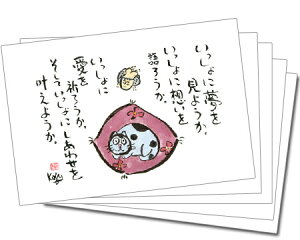 いっしょに夢を
見ようか、
いっしょに想いを
語ろうか、
いっしょに
愛を祈ろうか、
そしていっしょにしあわせを
叶えようか。